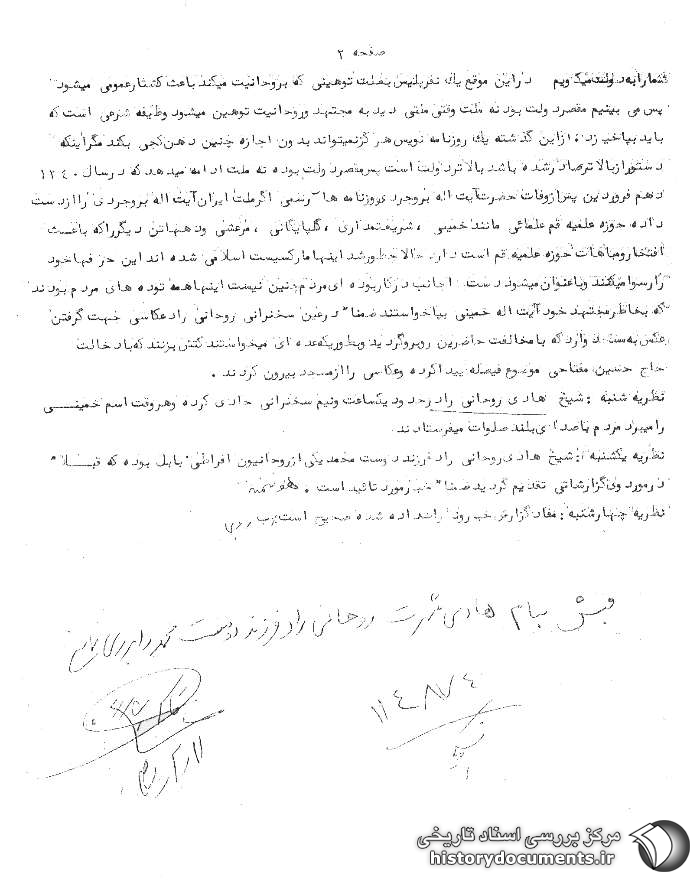 صفحه ۲
شما را به دولت میگویم در این موقع یک نفر پلیس بعلت توهینی که بروحانیت میکند باعث کشتار عمومی میشود
پس می بینیم مقصر دولت بود نه ملت وقتی ملتی دید به مجتهد و روحانیت توهین میشود وظیفه شرعی است که
باید بپاخیزد، از این گذشته یک روزنامه نویس هرگز نمیتواند بدون اجازه چنین دهن کجی بکند مگر اینکه
دستور از بالاتر صادر شده باشد بالاتر دولت است پس مقصر دولت بوده نه ملت ادامه میدهد که در سال ۱۳۴۰
دهم فروردین پس از وفات حضرت آیت اله بروجردی روزنامه ها رسمی اگر ملت ایران آیت اله بروجردی را از دست
داده حوزه علمیه قم علمائی مانند خمینی، شریعتمداری، گلپایگانی، مرعشی و دهها تن دیگر را که باعث
افتخار و مباهات حوزه علمیه قم است دارد حالا چطور شد اینها مارکسیست اسلامی شده اند این حرفها خود
را رسوا میکنند و یا عنوان میشود دست اجانب در کار بوده ای مردم چنین نیست اینها همه توده های مردم بودند
که بخاطر مجتهد خود آیت اله خمینی بپا خواستند ضمنا" در عین سخنرانی روحانی راد عکاسی جهت گرفتن
عکس به مسجد وارد که با مخالفت حاضرین روبرو گردید و بطوریکه عده ای میخواستند کتش بزنند که با دخالت
حاج حسین مفتاحی موضوع فیصله پیدا کرده و عکاسی را از مسجد بیرون کردند.
نظریه شنبه: شیخ هادی روحانی راد حدود یکساعت و نیم سخنرانی حادی کرده و هر وقت اسم خمینی
را میبرد مردم با صدای بلند صلوات میفرستادند.
نظریه یکشنبه: شیخ هادی روحانی راد فرزند دوست محمد یکی از روحانیون افراطی بابل بوده که قبلا"
در مورد وی گزارشاتی تقدیم گردید ضمنا" خبر مورد تائید است.
نظریه چهارشنبه: مفاد گزارش خبر روند داده شده صحیح است
فیش بنام هادی شهرت روحانی راد فرزند دوست محمد
۱۱۴۸۷۴
مرکز بررسی اسناد تاریخی
historydocuments.ir